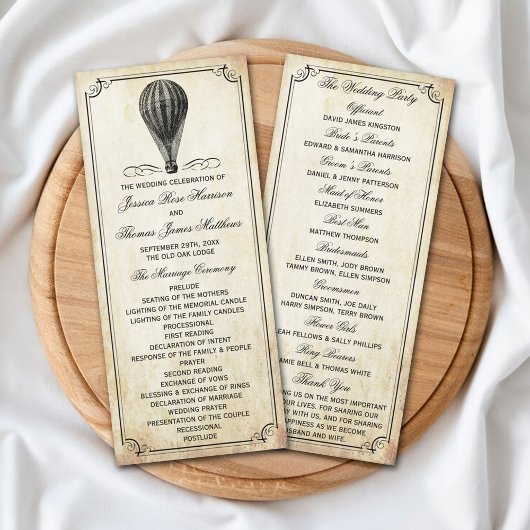 THE WEDDING CELEBRATION OF
Jessica Rose Harrison
AND
Thomas James Matthews
SEPTEMBER 29TH, 20XX
THE OLD OAK LODGE
The Marriage Ceremony
PRELUDE
SEATING OF THE MOTHERS
LIGHTING OF THE MEMORIAL CANDLE
LIGHTING OF THE FAMILY CANDLES
PROCESSIONAL
FIRST READING
DECLARATION OF INTENT
RESPONSE OF THE FAMILY & PEOPLE
PRAYER
SECOND READING
EXCHANGE OF VOWS
BLESSING & EXCHANGE OF RINGS
DECLARATION OF MARRIAGE
WEDDING PRAYER
PRESENTATION OF THE COUPLE
RECESSIONAL
POSTLUDE
The Wedding Party
Officiant
DAVID JAMES KINGSTON
Bride's Parents
EDWARD & SAMANTHA HARRISON
Groom's Parents
DANIEL & JENNY PATTERSON
Maid of Honor
ELIZABETH SUMMERS
Best Man
MATTHEW THOMPSON
Bridesmaids
ELLEN SMITH, JODY BROWN
TAMMY BROWN, ELLEN SIMPSON
Groomsmen
DUNCAN SMITH, JOE DAILY
HARRY STROUD, PAUL BROWN
Flower Girls
LEAH FELLOWS & SALLY PHILLIPS
Ring Bearers
JAMIE BELL & THOMAS WHITE
Thank You
BEING US ON THE MOST IMPORTANT
OUR LIVES, FOR SHARING OUR
DAY WITH US, AND FOR SHARING
HAPPINESS AS WE BECOME
HUSBAND AND WIFE.